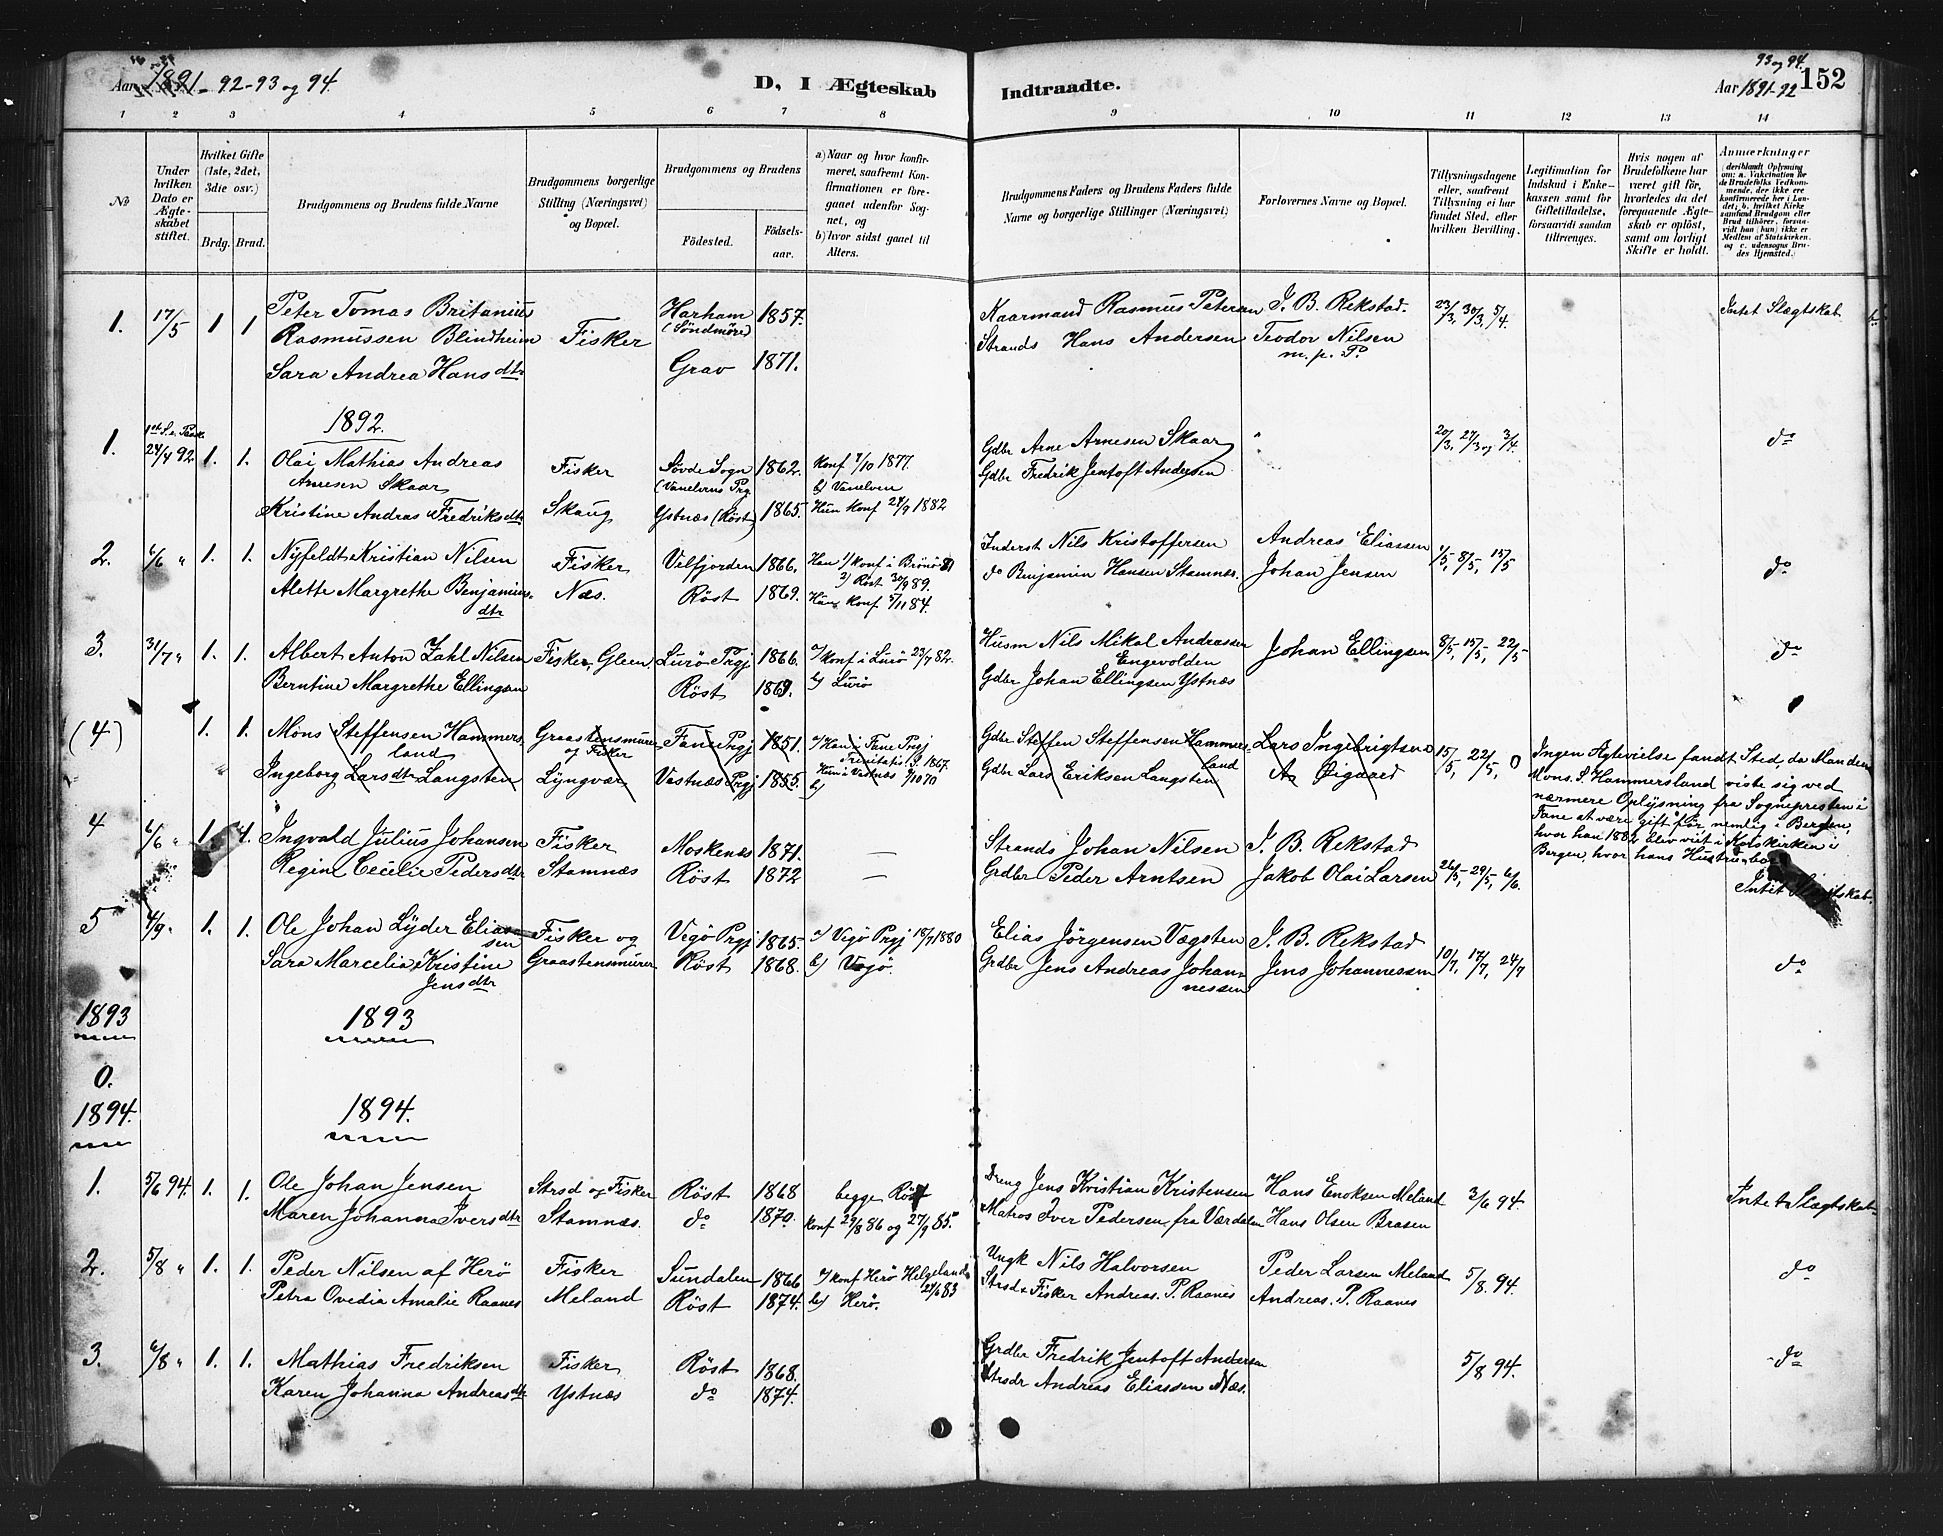 Aar 1891 - 92-93 og 94.
D, I Ægteskab
Indtraadte.
93 og 94.
Aar 1891-92
152
1 2 3 4 5 6 7 8 9 10 11 12 13 14
No
Under hvilken Dato er Ægteskabet stiftet.
Hvilket Gifte (1ste, 2det, 3die osv.)
Brdg. Brud.
Brudgommens og Brudens fulde Navne
Brudgommens borgerlige Stilling (Næringsvei) og Bopæl.
Brudgommens og Brudens
Fødested.
Fødsels-aar.
a) Naar og hvor konfirmeret, saafremt Konfirmationen er foregaaet udenfor Sognet, og
b) hvor sidst gaaet til Alters.
Brudgommens Faders og Brudens Faders fulde Navne og borgerlige Stillinger (Næringsvei)
Forlovernes Navne og Bopæl.
Tillysningsdagene eller, saafremt Tillysning ei har fundet Sted, efter hvilken Bevilling.
Legitimation for Indskud i Enkekassen samt for Giftetilladelse, forsaavidt saadan tiltrænges.
Hvis nogen af Brudefolkene har været gift før, hvorledes da det foregaaende Ægteskab er opløst, samt om lovligt Skifte er holdt.
Anmærkninger (deriblandt Oplysning om: a. Vakcination for de Brudefolks Vedkommende, der ikke ere konfirmerede her i Landet; b. hvilket Kirkesamfund Brudgom eller Brud tilhører, forsaavidt han (hun) ikke er Medlem af Statskirken, og c. udensogns Brudes Hjemsted.)
1. 17/5 1 1 Peter Tomas Britanius Harham 1857. Kaarmand Rasmus Petersen J. B. Rekstad. 23/3, 30/3, 5/4. Intet Slægtskab.
Rasmussen Blindheim Fisker (Søndmøre) Strands Hans Andersen Teodor Nilsen
m. p. P.
Sara Andrea Hansdtr Grav 1871.
1892.
1. 24/4 92 1. 1. Olai Mathias Andreas Fisker Søvde Sogn 1862. konf 7/10 1877. Gdbr Arne Arnesen Skaar " 20/3, 27/3 og 3/4. do
Arnesen Skaar (Vanelvens Prg. b) Vanelven Gdbr Fredrik Jentoft Andersen
Kristine Andrea Fredriksdtr Skaug Ystnæs (Røst) 1865. Hun konf 24/9 1882
2. 6/6 " 1. 1. Nyfeldt Kristian Nilsen Fisker Velfjorden 1866. Han 1) konf i Brønø 81 Inderst Nils Kristoffersen Andreas Eliassen 1/5, 8/5, 15/5 do
2) Røst 30/9 89. do Benjamin Hansen Stamnæs. Johan Jensen
Alette Margrethe Benjamins-dtr Næs. Røst 1869. Hun konf 84.
3. 31/7 " 1. 1. Albert Anton Zahl Nilsen Fisker, Gleen Lurø Prgj 1866. a) konf i Lurø 23/7 82. Husm Nils Mikal Andrassen Johan Ellingsen 8/5, 15/5, 22/5 do
Engevolden
Berntine Margrethe Ellingsen Røst 1869. b) Lurø Gdbr Johan Ellingsen Ystnæs
(4) 1. 1. Mons Steffensen Hammers-land Graastensmurer og Fisker Fane Prgj 1851. a) Han i Fane Prgj Trinitatis S. 1867. Gdbr Steffen Steffensen Hammersland Lars Ingebrigtsen 15/5, 22/5, 0
Ingeborg Larsdtr Langsten Lyngvær Vestnæs Prgj 1855. Hun i Vestnæs 70 b) Gdbr Lars Eriksen Langsten Øigaard
Ingen Ægtevielse fandt Sted, da Manden
Mons. S. Hammersland viste sig ved
nærmere Oplysning fra Sognepresten i
Fane at være gift før, nemlig i Bergen,
hvor han 1882 blev viet i Korskirken i
Bergen, hvor hans Hustru bor.
4 6/6 " 1. 1. Ingvald Julius Johansen Fisker Moskenæs 1871. — Strands Johan Nilsen J. B. Rekstad
Regine Cecilie Pedersdtr Stamnæs Røst 1872 — Grdbr Peder Arntsen Jakob Olai Larsen 26/5, 29/5, 6/6. Intet Slægtskab.
5 4/9. 1. 1. Ole Johan Lyder Elias-sen Fisker og Vegø Prgj 1865. a) Vegø Prgj 18/7 1880 Elias Jørgensen Vægsten J. B. Rekstad
Sara Marcelia Kristine Jensdtr Graastensmurer Røst 1868. b) Vegø. Grdbr Jens Andreas Johan-nessen Jens Johannessen 10/7, 17/7, 24/7 do
1893 1893
0.
1894. 1894.
1. 5/6 94. 1. 1. Ole Johan Jensen Strsd og Fisker Røst 1868 begge Røst Dreng Jens Kristian Kristensen Hans Enoksen Meland 3/6 94. Intet Slægtskab
Maren Johanna Iversdtr Stamnæs. do 1870. konf 29/8 86 og 27/9 85. Matros Iver Pedersen fra Værdalen Hans Olsen Brasen
2. 5/8 " 1. 1. Peder Nilsen af Herø Fisker Sundalen 1866 a) konf Herø Helgeland 24/6 83 Ungk Nils Halvorsen Peder Larsen Meland 5/8. 94. do
Petra Ovedia Amalie Raanes Meland Røst 1874. b) Herø. Strsd & Fisker Andreas. P. Raanes Andreas. P. Raanes
3. 6/8 " 1. 1. Mathias Fredriksen Fisker Røst 1868. Grdbr Fredrik Jentoft Andersen 5/8 94. do
Karen Johanna Andreasdtr Ystnæs do 1874. Strsdr Andreas Eliassen Næs.